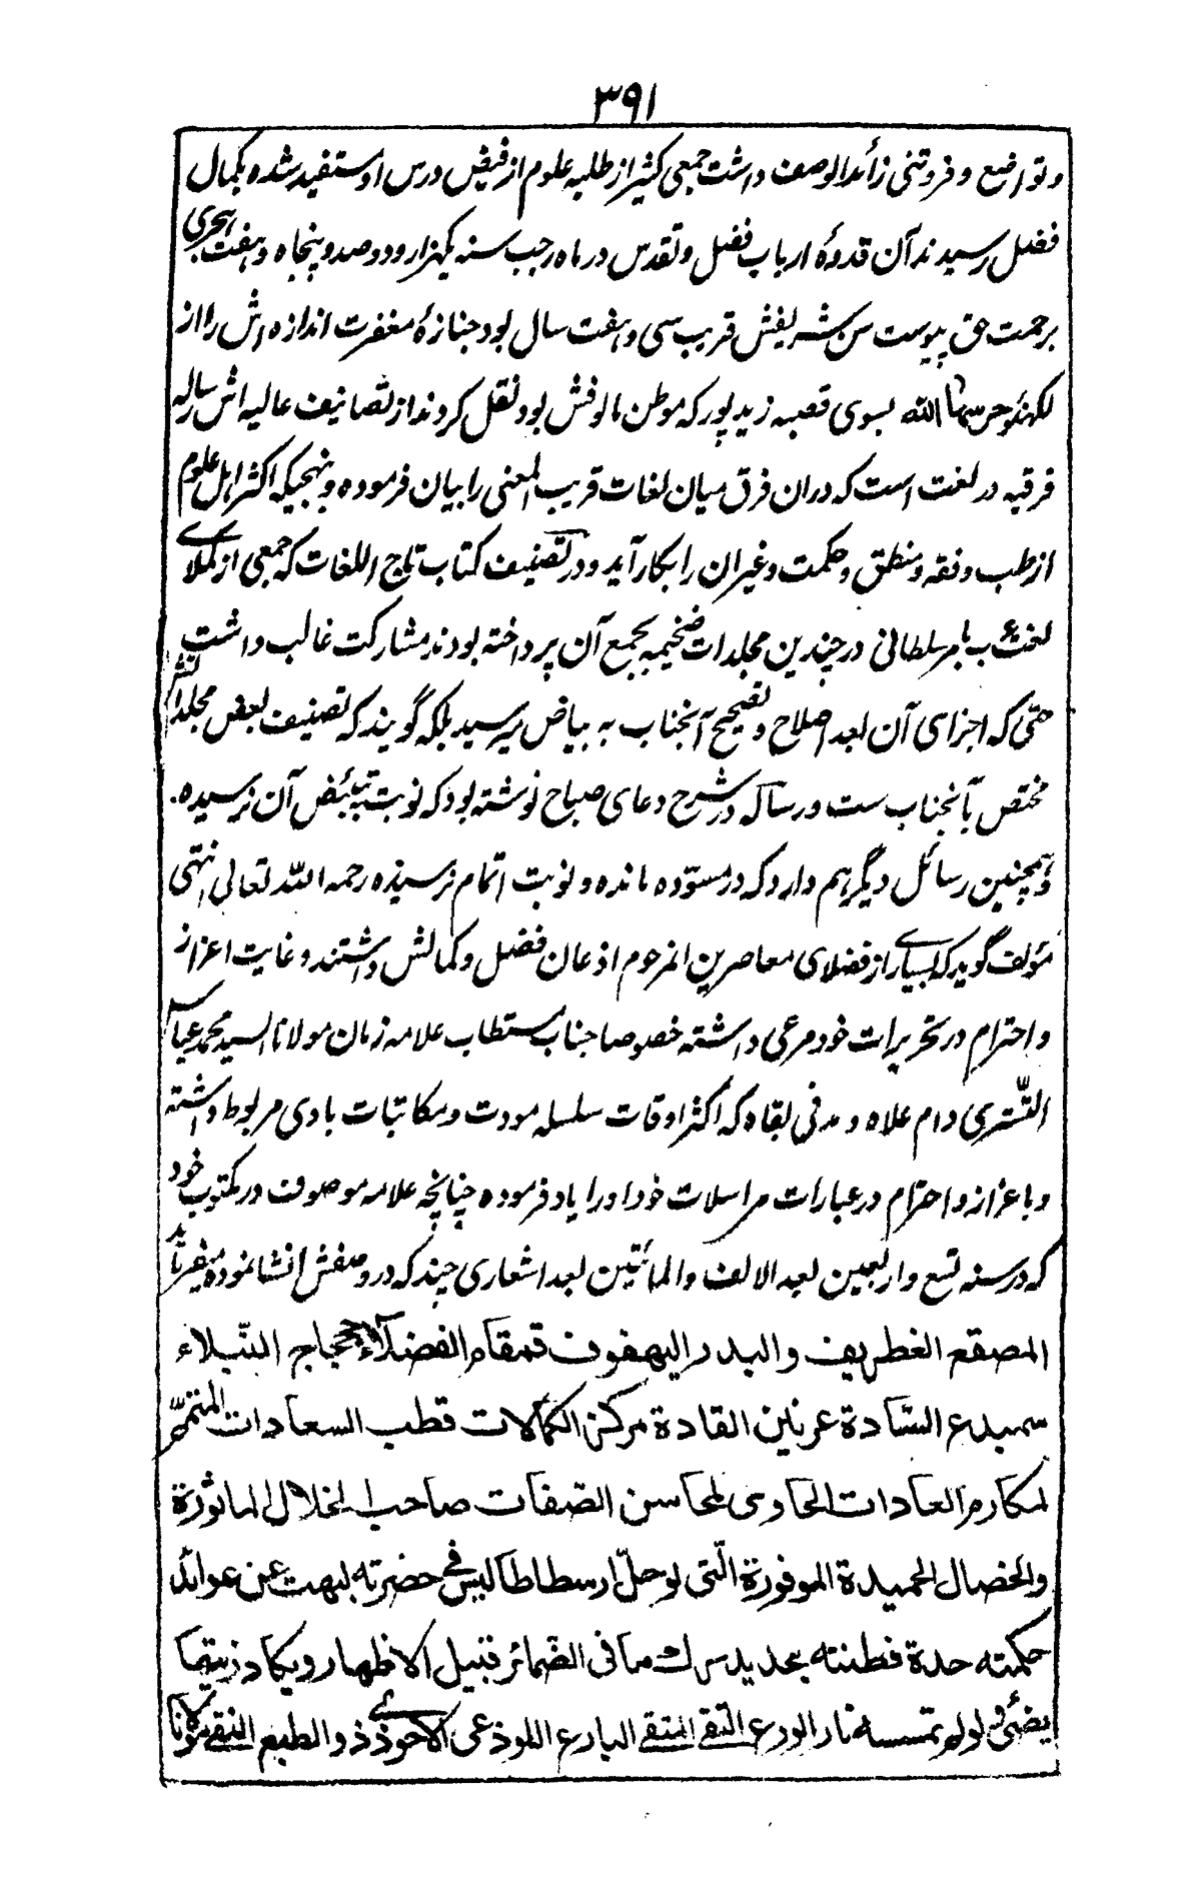 ۳۹۱
و تواضع و فروتنی زائد الوصف داشت جمعی کثیر از طلبه علوم از فیض درس او مستفید شده بکمال
فضل رسیدند آن قدوهٔ ارباب فضل و تقدس در ماه رجب سنه یکهزار و دو صد و پنجاه و هفت هجری
برحمت حق پیوست سن شریفش قریب سی و هفت سال بود جنازهٔ مغفرت اندازه اش را از
لکهنؤ حرسها الله بسوی قصبه زیدپور که موطن مالوفش بود نقل کردند از تصانیف عالیه اش رساله
فرقیه در لغت است که دران فرق میان لغات قریب المعنی را بیان فرموده و بنهجیکه اکثر اهل علوم
از طب و فقه و منطق و حکمت و غیران را بکار آید و در تصنیف کتاب تاج اللغات که جمعی از کملای
لغت عرب بامر سلطانی در چندین مجلدات ضخیمه بجمع آن پرداخته بودند مشارکت غالب داشت
حتی که اجزای آن بعد اصلاح و تصحیح آنجناب به بیاض میرسید بلکه گویند که تصنیف بعض مجلداتش
مختص بآنجناب ست و رساله در شرح دعای صباح نوشته بود که نوبت تبیئض آن نرسیده.
و همچنین رسائل دیگر هم دارد که در مسوّده مانده و نوبت اتمام نرسیده رحمه الله تعالی انتهی
مؤلف گوید که بسیاری از فضلای معاصرین المرحوم اذعان فضل و کمالش داشتند و غایت اعزاز
و احترام در تحریرات خود مرعی داشته خصوصا جناب مستطاب علامه زمان مولانا السید محمد عباس
التّستری دام علاه و مد فی بقاه که اکثر اوقات سلسله مودت و مکاتبات با وی مربوط داشته
و باعزاز و احترام در عبارات مراسلات خود او را یاد فرموده چنانچه علامه موصوف در مکتوب خود
که در سنه تسع و اربعین بعد الالف و المائتین بعد اشعاری چند که در وصفش انشا نموده میفرماید
المصقع الغطریف والبدر الیهفوف قمقام الفضلاء جحجاح النّبلاء
سمیدع السّادة عرنین القادة مرکز الکمالات قطب السعادات المتنمّر
لمکارم العادات الحاوی لمحاسن الصّفات صاحب الخلال الماثورة
والخصال الحمیدة الموفورة الّتی لو حلّ ارسطاطالیس فی حضرته لبهت عن عوائد
حکمته حدة فطنته بحدید سرك ما فی الضّمائر قبیل الاظهار و یکاد زیتها
یضیٔ و لو لم تمسسه نار الورع التقی المتقی البارع اللوذعی الاحوذی ذو الطبع النقی مولانا